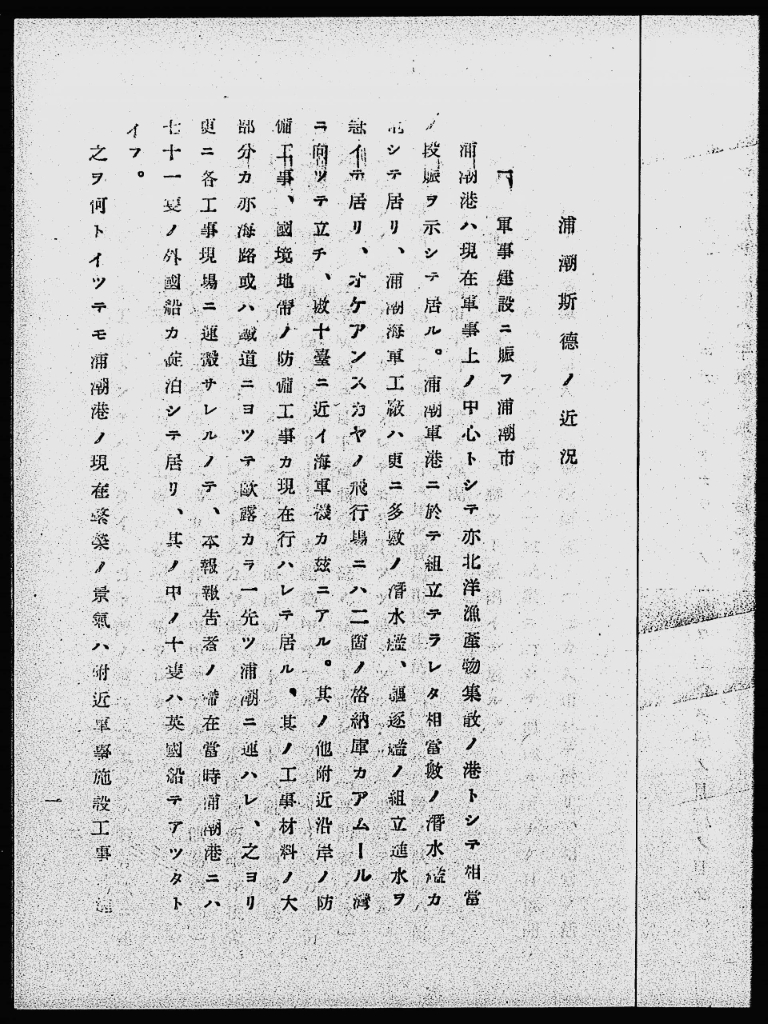 浦潮斯德ノ近況
一、軍事建設ニ賑フ浦潮市
浦潮港ハ現在軍事上ノ中心トシテ亦北洋漁產物集散ノ港トシテ相當
ノ殷賑ヲ示シテ居ル。浦潮軍港ニ於テ組立テラレタ相當數ノ潛水艦カ
シテ居リ、浦潮海軍工廠ハ更ニ多數ノ潛水艦、驅逐艦ノ組立進水ヲ
急イテ居リ、オケアンスカヤノ飛行場ニハ二箇ノ格納庫カアムール灣
ニ向ツテ立チ、數十臺ニ近イ海軍機カ玆ニアル。其ノ他附近沿岸ノ防
備工事、國境地帶ノ防備工事カ現在行ハレテ居ル。其ノ工事材料ノ大
部分カ亦海路或ハ鐵道ニヨツテ歐露カラ一先ツ浦潮ニ運ハレ、之ヨリ
更ニ各工事現場ニ運搬サレルノテ、本報報告者ノ滯在當時浦潮港ニハ
七十一隻ノ外國船カ碇泊シテ居リ、其ノ中ノ十隻ハ英國船テアツタト
イフ。
之ヲ何トイツテモ浦潮港ノ現在繁榮ノ景氣ハ附近軍事施設工事
一